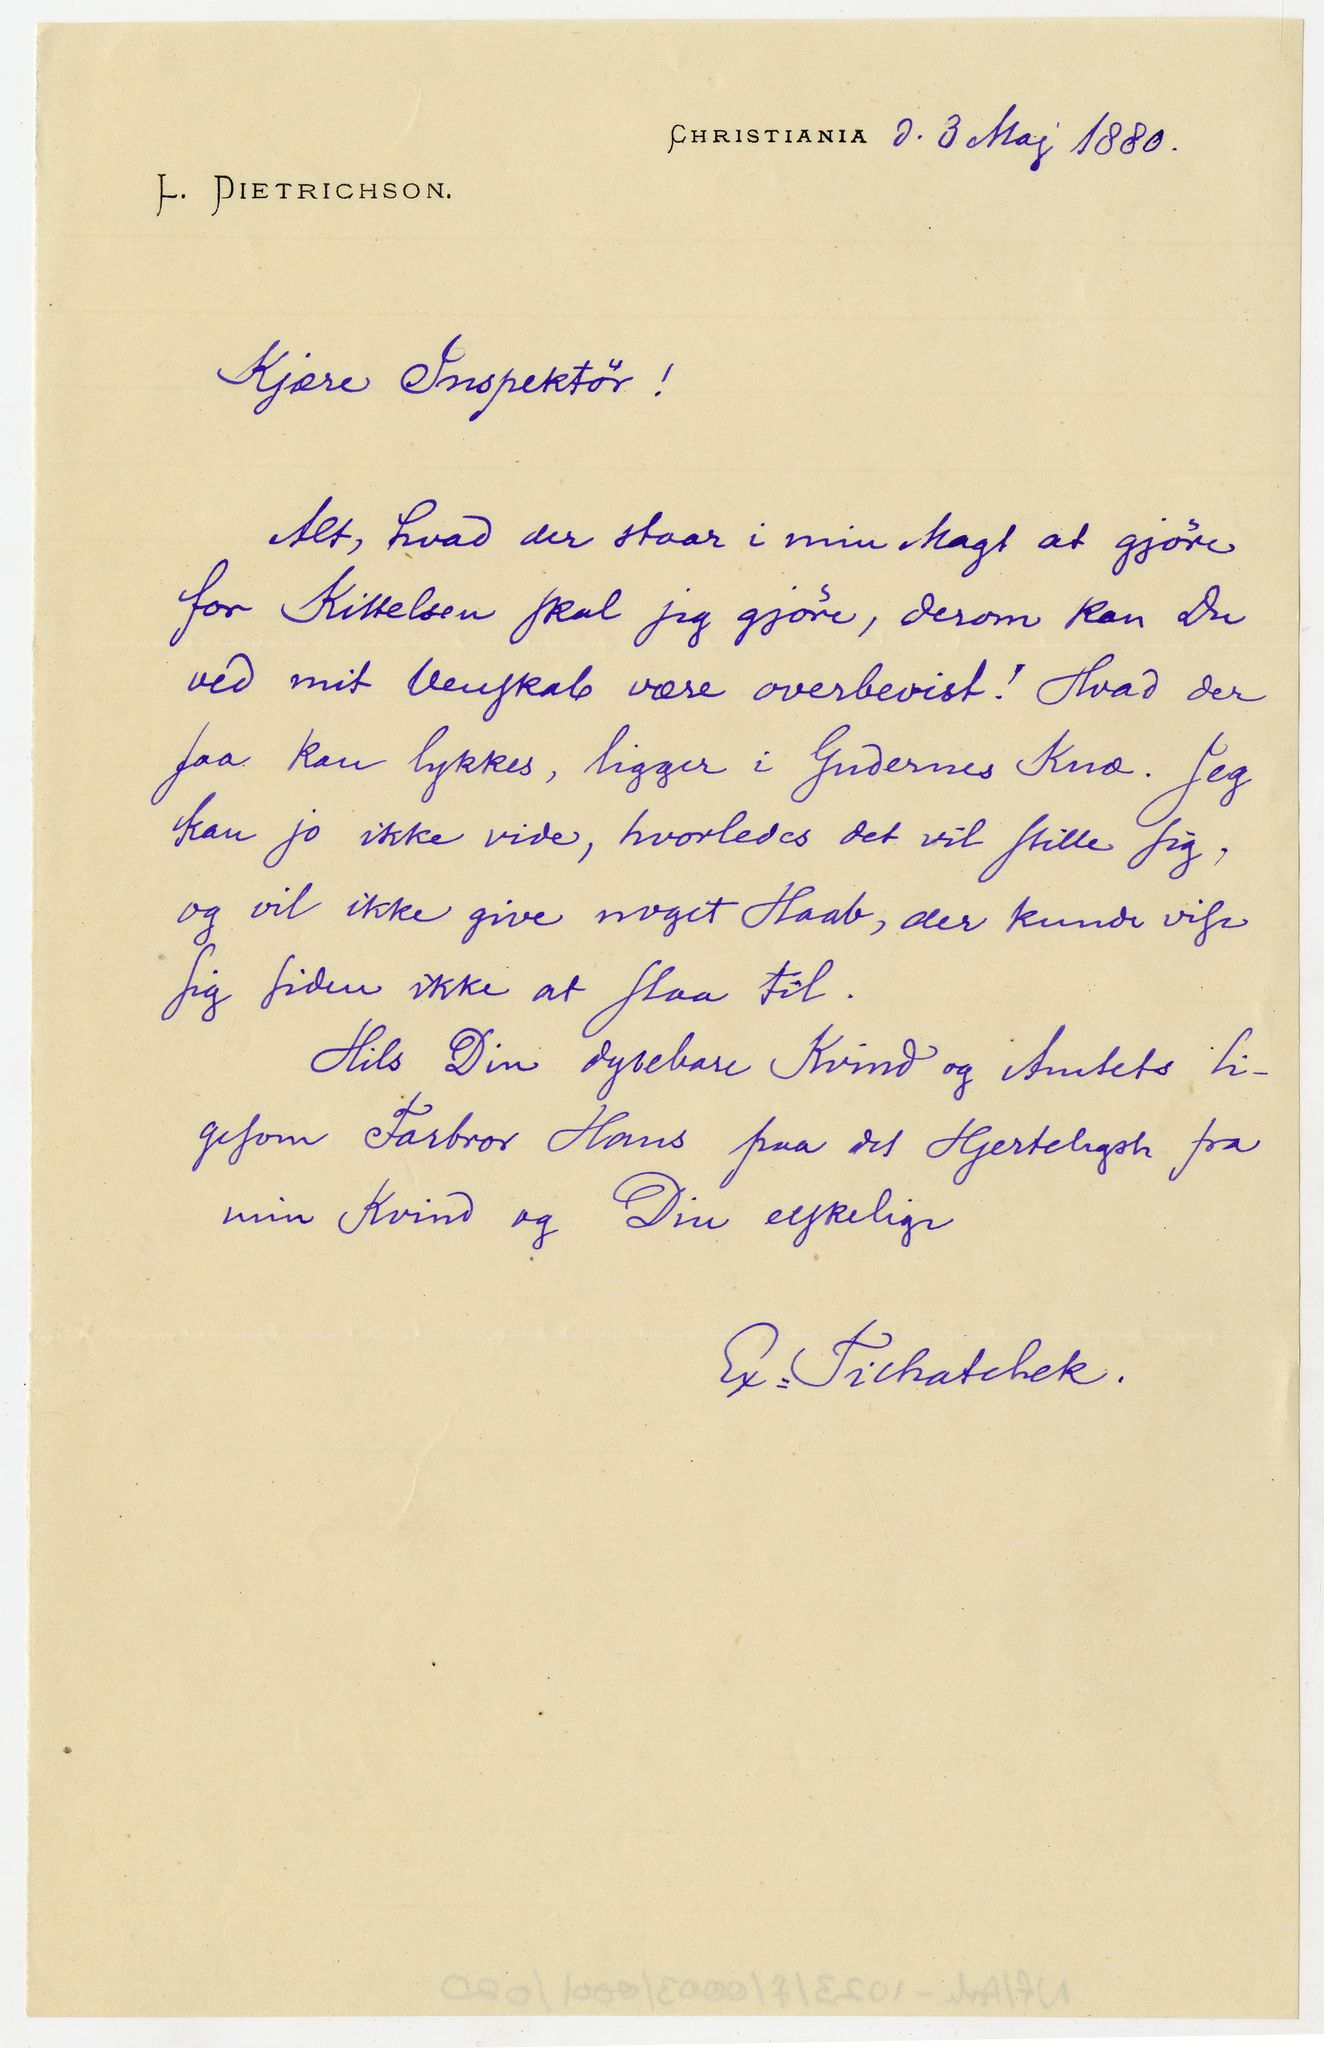 CHRISTIANIA d. 3 Maj 1880.
L. DIETRICHSON.
Kjære Inspektör!
Alt, hvad der staar i min Magt at gjöre
for Kittelsen skal jeg gjöre, derom kan Du
ved mit Venskab være overbevist! Hvad der
saa kan lykkes, ligger i Gudernes Knæ. Jeg
kan jo ikke vide, hvorledes det vil stille sig,
og vil ikke give noget Haab, der kunde vise
sig siden ikke at slaa til.
Hils Din dyrebare Kvind og Amtets li-
gesom Farbror Hans paa det Hjerteligste fra
min Kvind og Din elskelige
Ex=Tichatchek.